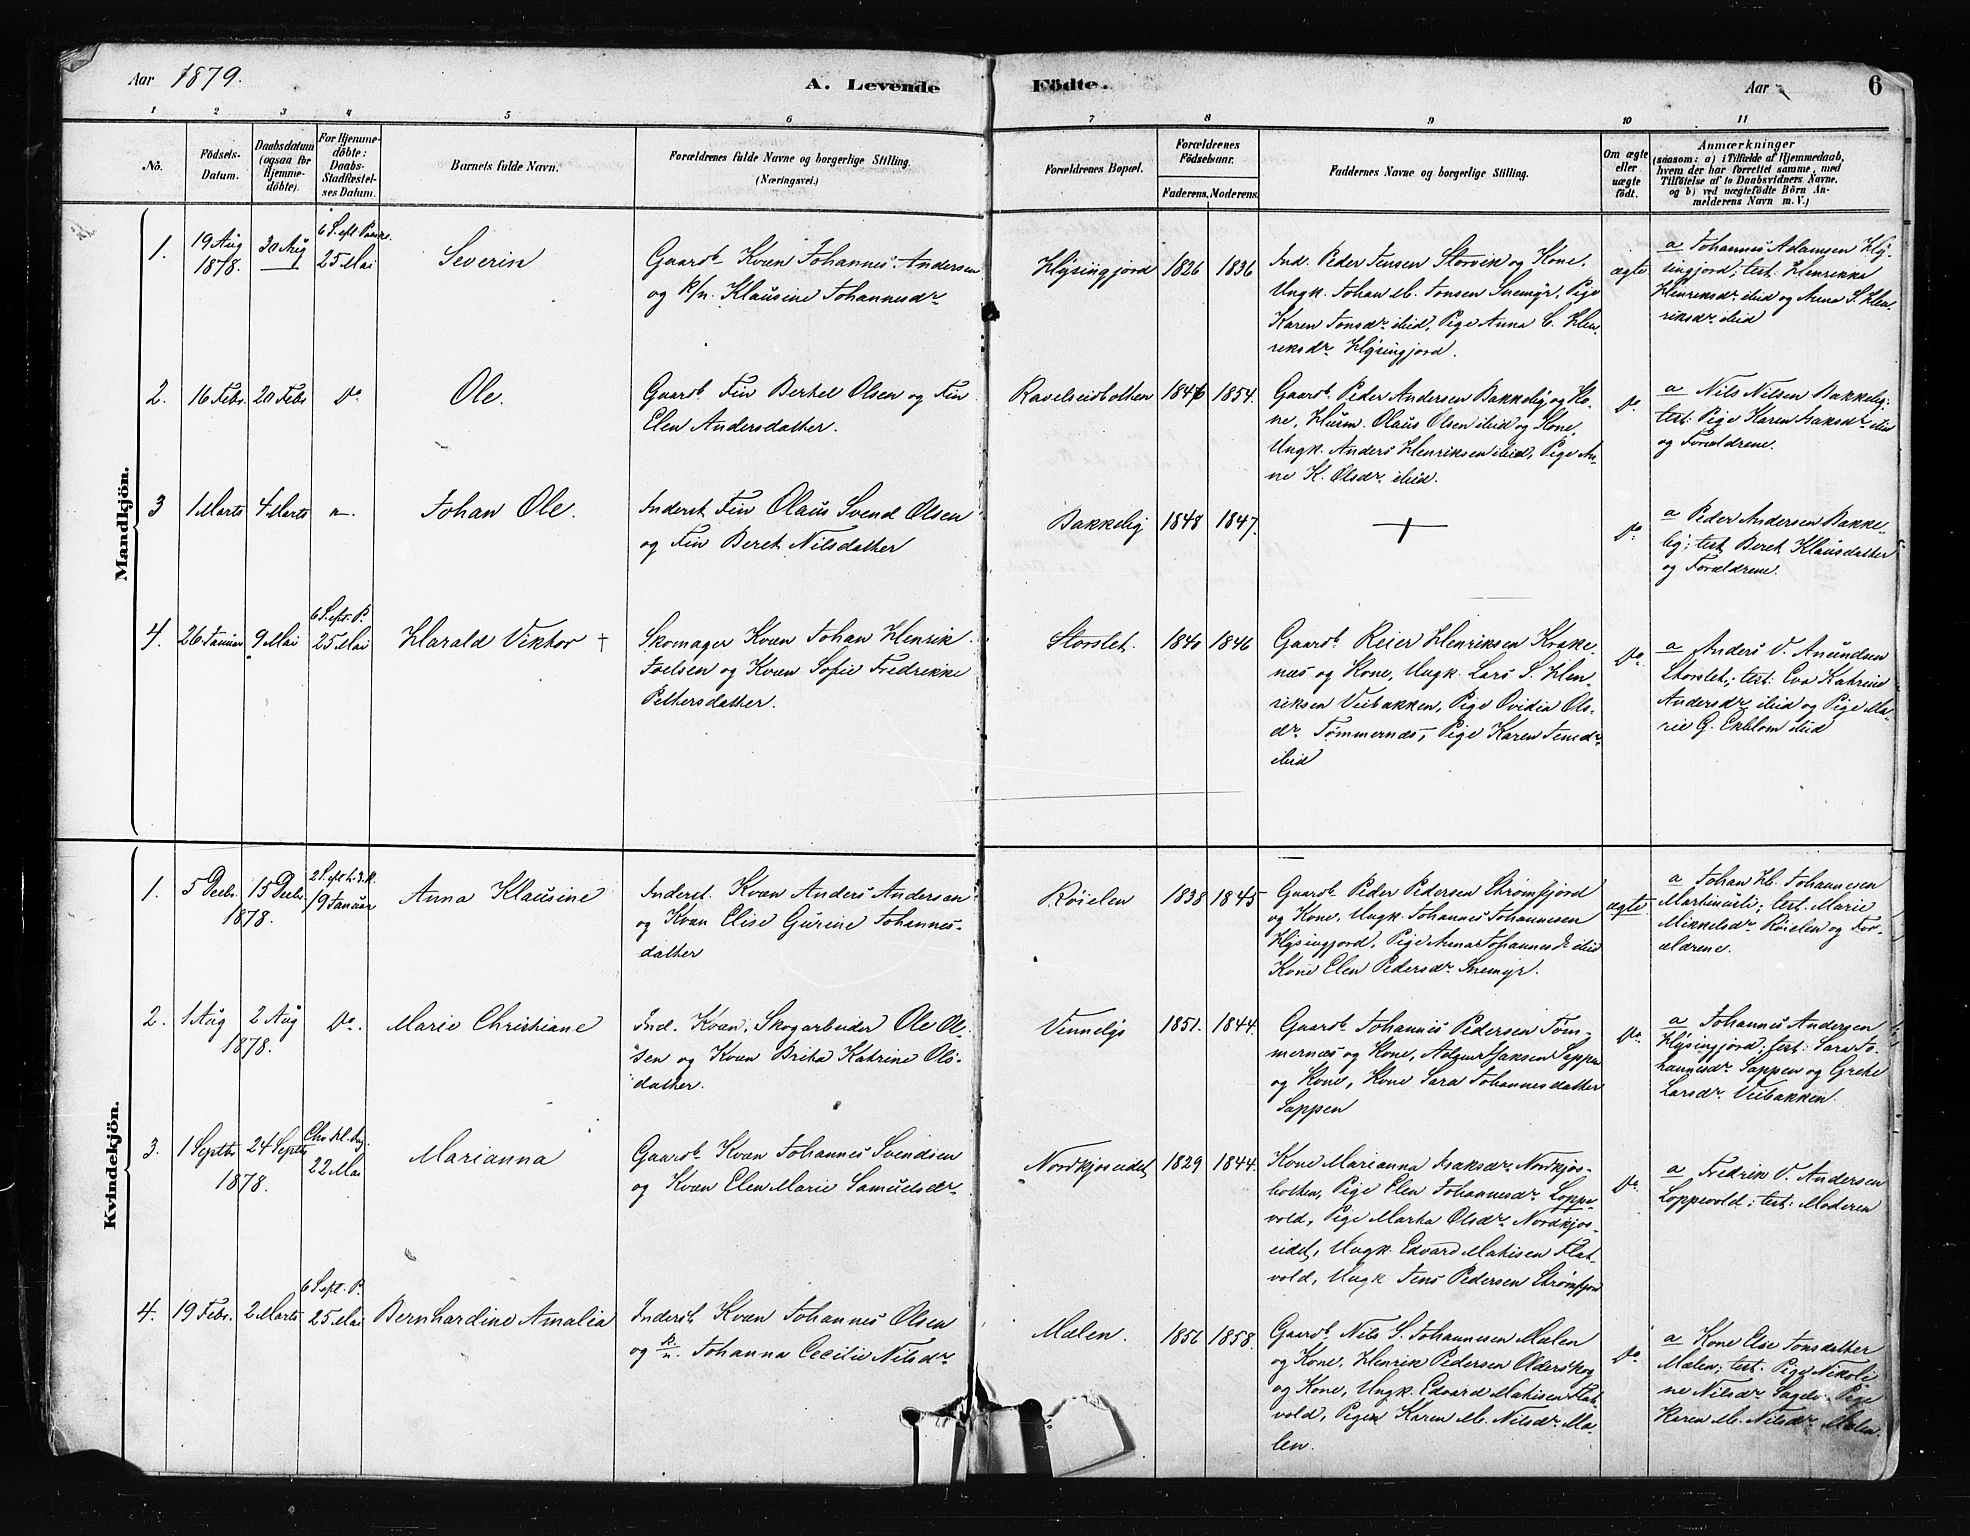 Aar 1879.
A. Levende Födte.
Aar
6
1 2 3 4 5 6 7 8 9 10 11
No.
Födsels-
Datum.
Daabsdatum
(ogsaa for
Hjemme-
döbte).
For Hjemme-
döbte:
Daabs-
Stadfæstel-
ses Datum.
Barnets fulde Navn.
Forældrenes fulde Navne og borgerlige Stilling.
(Næringsvei.)
Forældrenes Bopæl.
Forældrenes
Födselsaar.
Faderens. Moderens.
Faddernes Navne og borgerlige Stilling.
Om ægte
eller
uægte
født.
Anmærkninger
(saasom: a) i Tilfælde af Hjemmedaab,
hvem der har forrettet samme, med
Tilföielse af to Daabsvidners Navne.
og b) ved uægtefödte Börn An-
melderens Navn m. V.)
Mandkjön.
1.
19 Aug
1878.
30 Aug
6 S. eft Paaske.
25 Mai
Severin
Gaardb. Kvæn Johannes Andersen
og k/n. Klausine Johannesdr
Hysingjord
1826
1836
Ind. Peder Jensen Storvik og Kone,
Ungk. Johan M. Jonsen Snemyr, Pige
Karen Jonsdr ibid, Pige Anna C. Hen-
riksdr Hysingjord.
ægte
a Johannes Adamsen Hy-
singjord; test. Henrikke
Henriksdr ibid og Anna S. Hen-
riksdr ibid
2.
16 Febr.
20 Febr
Do
Ole.
Gaardb. Fin Berhel Olsen og Fin
Elen Andersdatter.
Ravelseidbotten
1846
1854.
Gaardb. Peder Andersen Bakkelig og Ko-
ne, Huusm. Olaus Olsen ibid og Kone,
Ungk. Anders Henriksen ibid, Pige An-
ne K. Olsdr ibid.
Do.
a Nils Nilsen Bakkelig;
test: Pige Karen Isaksdr ibid
og Forældrene.
3
1 Marts
4 Marts
Johan Ole.
Inderst. Fin Olaus Svend Olsen
og Fin Beret Nilsdatter
Bakkelig
1848
1847.
Do.
a Peder Andersen Bakke-
lig; test Beret Klausdatter
og Forældrene.
4.
26 Januar
9 Mai
6 S. eft. P.
25 Mai
Harald Viktor +
Skomager Kvæn Johan Henrik
Joelsen og Kvæn Sofie Fredrikke
Pettersdatter.
Storslet.
1840
1846
Gaardb. Reier Henriksen Krake-
næs og Kone, Ungk. Lars S. Hen-
riksen Veibakken, Pige Ovidia Ols-
dr Tømmernæs, Pige Karen Jensdr
ibid
Do.
a Anders V. Amundsen
Storslet; test: Eva Katrine
Andersdr ibid og Pige Ma-
rie G. Ekblom ibid
Kvindekjön.
1.
5 Decbr.
15 Decbr.
1878.
19 Januar
Anna Klausine
Inderst. Kvæn Anders Andersen
og Kvæn Elise Gurine Johannes-
datter
Röielen
1838
1845
Gaardb. Peder Pedersen Strømfjord
og Kone, Ungk. Johannes Johannesen
Hysingjord, Pige Anna Johannesdr ibid
Kone Elen Pedersdr Snemyr.
ægte
a Johan H. Johannesen
test. Marie
Mikkelsdr Röielen og For-
ældrene.
2.
1 Aug
2 Aug
1878.
Do.
Marie Christiane
Ind. Kvæn, Skogarbeider Ole Ol-
sen og Kvæn Brita Katrine Ols-
datter.
Vinnelys
1851.
1844.
Gaardb. Johannes Pedersen Töm-
mernæs og Kone, Adam Isaksen Sappen
og Kone, Kone Sara Johannesdatter
Sappen
Do.
a Johannes Andersen
Hysingjord; test: Sara Jo-
hannesdr Sappen og Grethe
Larsdr Veibakken.
3.
1 Septbr
24 Septbr
1878.
Chr. Hl. dag.
22 Mai
Marianna
Gaardb. Kvæn Johannes Svendsen
og Kvæn Elen Marie Samuelsdr
Nordkjoseidet
1829
1844.
Kone Marianna Isaksdr Nordkjos-
botten, Pige Elen Johannesdr Loppe-
vold, Pige Marta Olsdr Nordkjos-
eidet, Ungk. Edvard Mathisen Flat-
vold, Ungk Jens Pedersen Strømfjord
Do.
a Fredrik V. Andersen
Loppevold; test: Moderen
4.
19 Febr.
2 Marts
6 S. eft. P.
25 Mai
Bernhardine Amalia
Inderst. Kvæn Johannes Olsen
og k/n. Johanna Cecilie Nilsdr
Mælen.
1856
1858.
Gaardb. Nils S. Johannesen Mælen
og Kone, Henrik Pedersen Olderskog
og Kone, Ungk. Edvard Mathisen Flat-
vold, Pigen Karen M. Nilsdr Mæ-
len.
Do
a Kone Else Jonsdatter
Mælen; test: Pige Nikoli-
ne Nilsdr Pige
Karen M. Nilsdr Mælen.